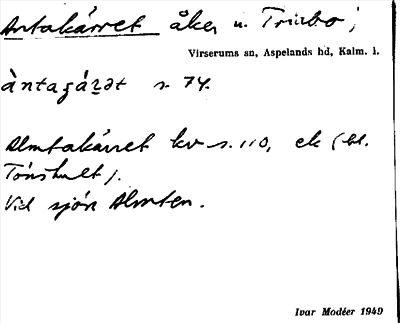 Antakärret åker u. Trinbo;
Virserums sn, Aspelands hd, Kalm. l.
àntagáʀət s. 74.
Almtakärret kv s. 110, ek (bl.
Tönshult).
Vid sjön Almten.
Ivar Modéer 1949